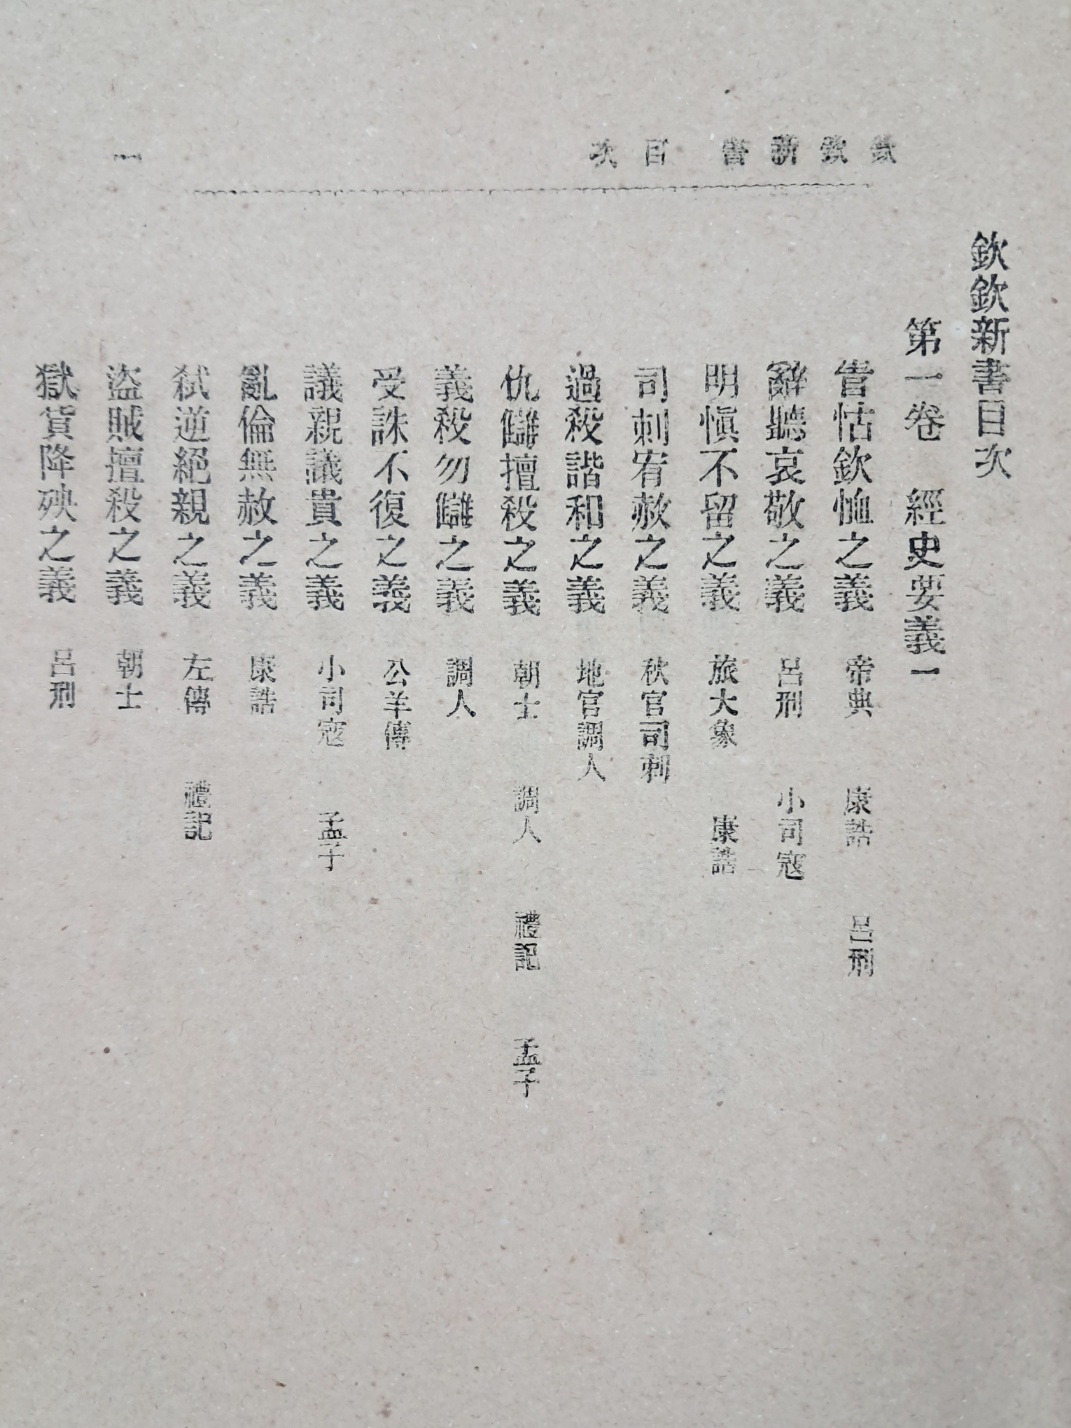 欽欽新書 目次
一
欽欽新書目次
第一卷 經史要義一
眚怙欽恤之義 帝典 康誥 呂刑
辭聽哀敬之義 呂刑 小司寇
明愼不留之義 旅大象 康誥
司刺宥赦之義 秋官司刺
過殺諧和之義 地官調人
仇讎擅殺之義 朝士 調人 禮記 孟子
義殺勿讎之義 調人
受誅不復之義 公羊傳
議親議貴之義 小司寇 孟子
亂倫無赦之義 康誥
弑逆絕親之義 左傳 禮記
盜賊擅殺之義 朝士
獄貨降殃之義 呂刑